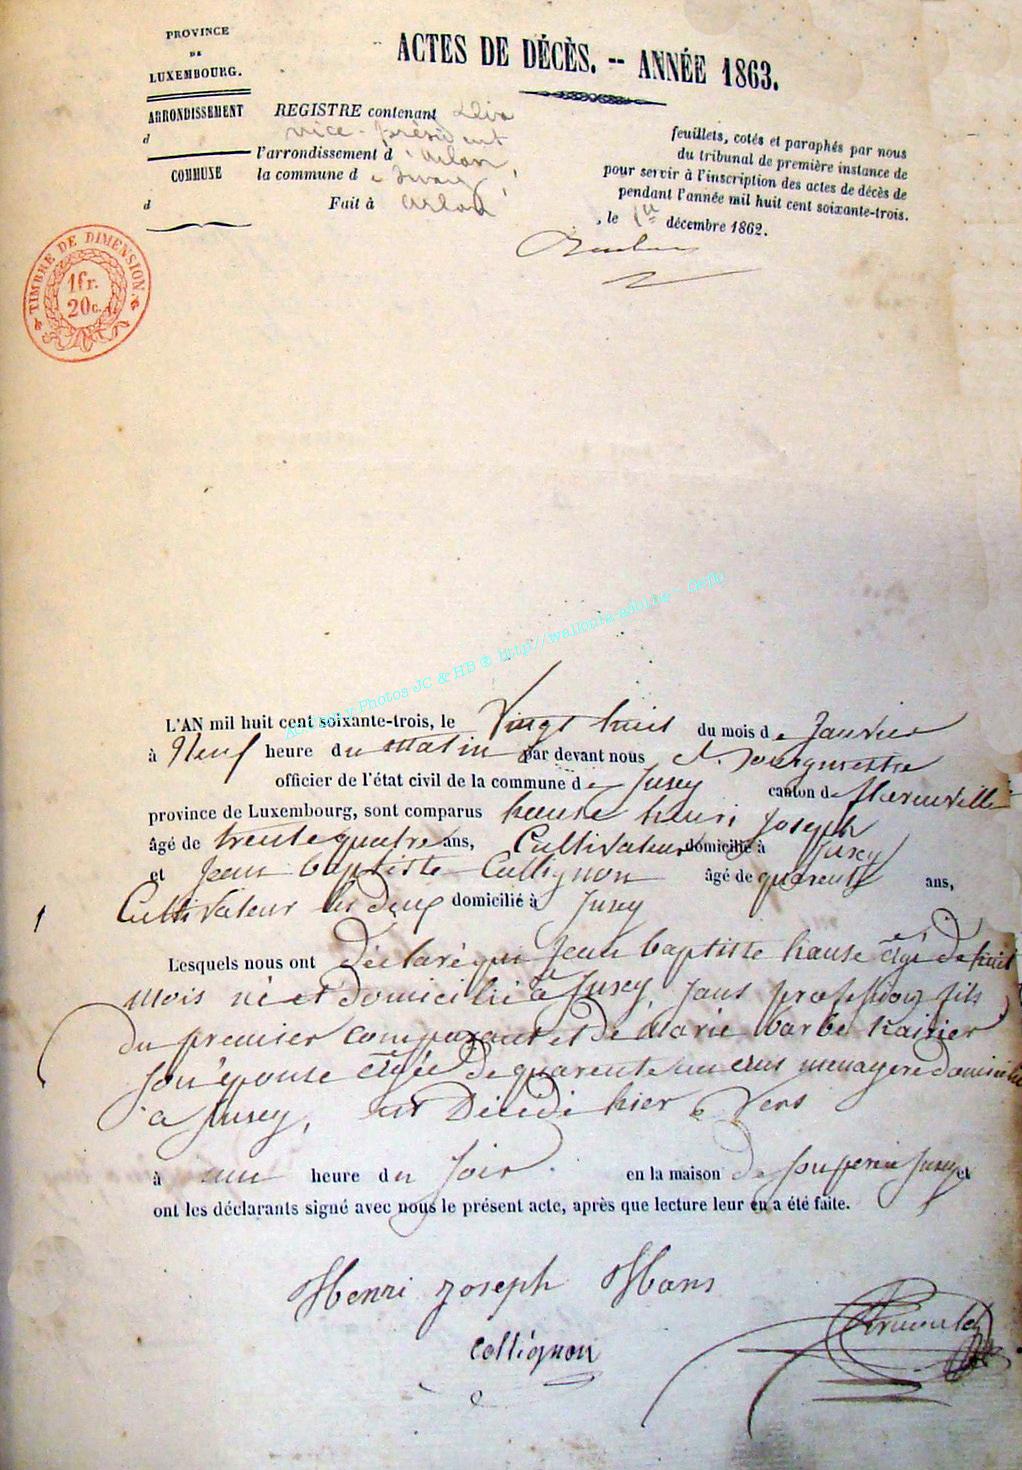 PROVINCE
DE
LUXEMBOURG.
ARRONDISSEMENT
d
COMMUNE
d
ACTES DE DÉCÈS. -- ANNÉE 1863.
REGISTRE contenant
vice-président
l'arrondissement d'Arlon,
la commune de Jusey
Fait à Arlon
feuillets, cotés et paraphés par nous
du tribunal de première instance de
pour servir à l'inscription des actes de décès de
pendant l'année mil huit cent soixante-trois.
, le 1er décembre 1862.
TIMBRE DE DIMENSION.
1fr.
20c.
Photos JC & HB © http://wallonia-asbl.be
L'AN mil huit cent soixante-trois, le Vingt huit du mois de Janvier
à Neuf heure du matin par devant nous Bourgmestre
officier de l'état civil de la commune de Jusey canton de
province de Luxembourg, sont comparus hanse henri Joseph
âgé de trente quatre ans, Cultivateur domicilié à Jusey
et Jean baptiste Collignon âgé de quarente ans,
Cultivateur les deux domicilié à Jusey
Lesquels nous ont déclaré que Jean baptiste hanse âgé de huit
mois né et domicilié à Jusey, sans profession fils
du premier comparant et de Marie barbe
son épouse âgée de quarente un ans menagere domicilié
a Jusey, est Décédé hier vers
à une heure du soir. en la maison de son pere a Jusey et
ont les déclarants signé avec nous le présent acte, après que lecture leur en a été faite.
Henri Joseph Hans
Collignon